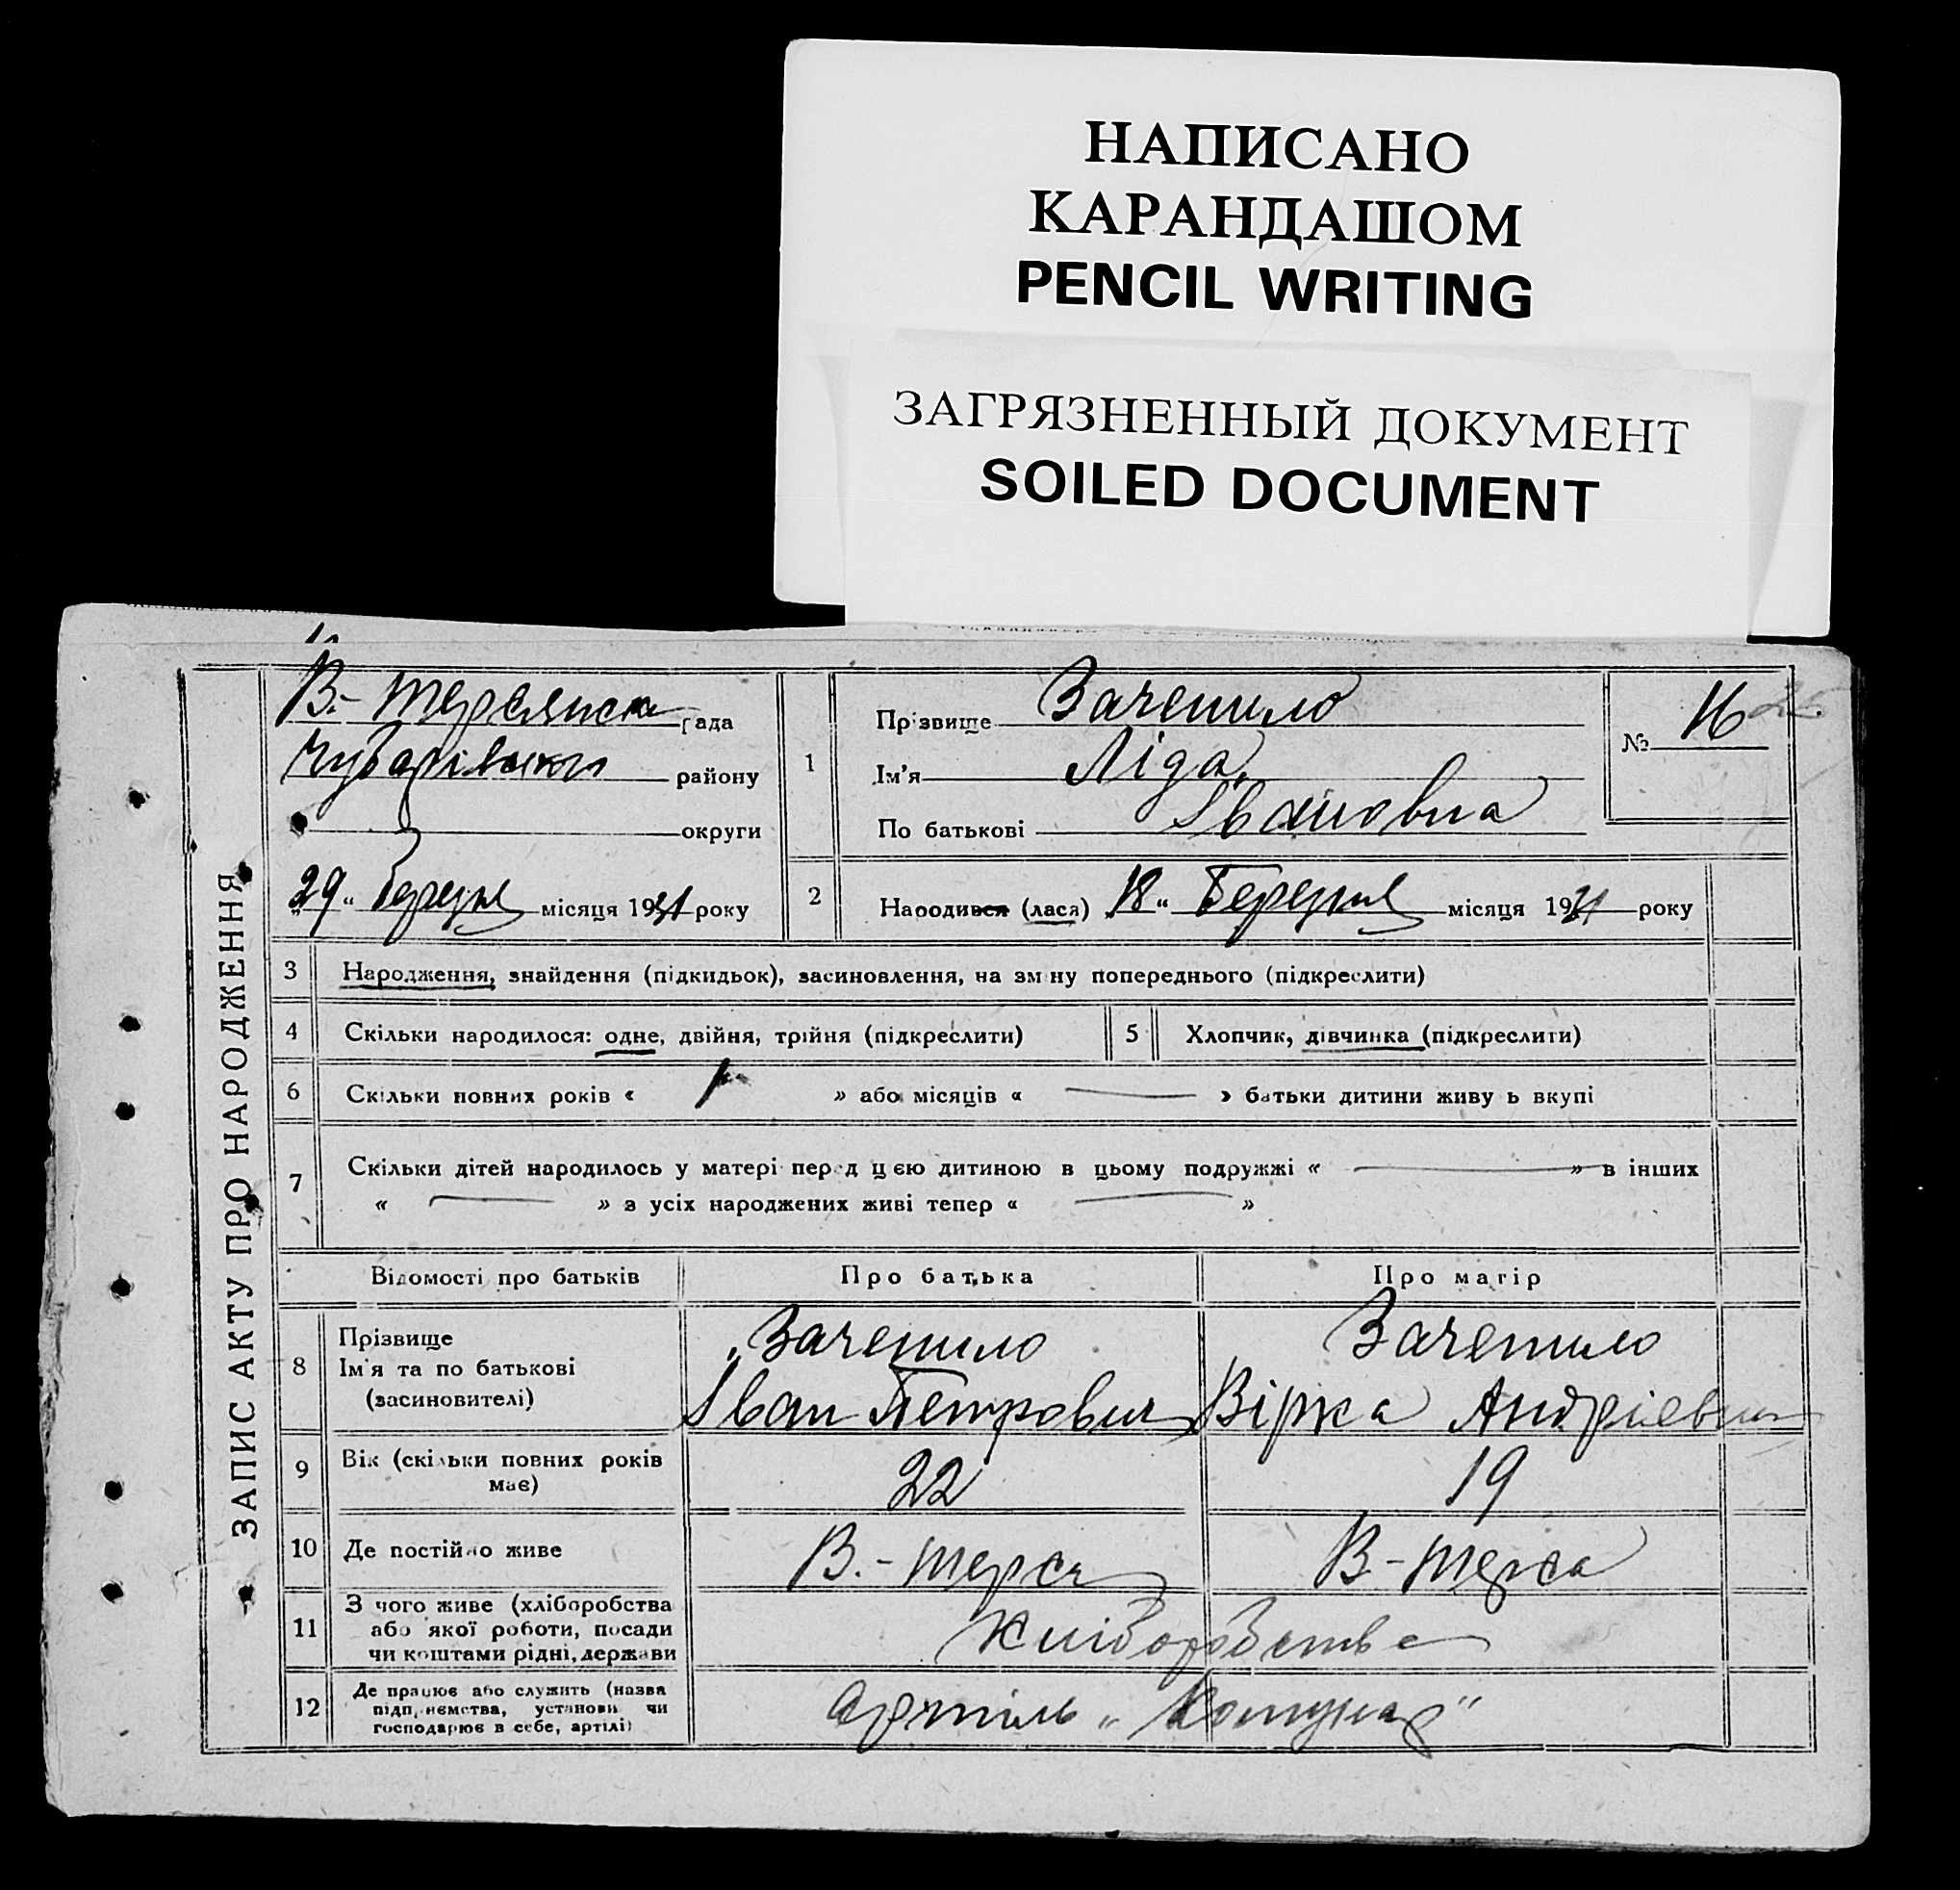 НАПИСАНО
КАРАНДАШОМ
PENCIL WRITING
ЗАГРЯЗНЕННЫЙ ДОКУМЕНТ
SOILED DOCUMENT
ЗАПИС АКТУ ПРО НАРОДЖЕННЯ
В.-Терсянська рада
Чубарівськ району
округи
29 " Березня місяця 1931 року
1
Прізвище Зачепило
Ім'я Ліда
По батькові Івановна
№ 16
2 Народився (лася) 18 " Березня місяця 1931 року
3 Народження, знайдення (підкидьок), засиновлення, на зміну попереднього (підкреслити)
4 Скільки народилося: одне, двійня, трійня (підкреслити)
5 Хлопчик, дівчинка (підкреслити)
6 Скільки повних років « 1 » або місяців « — » батьки дитини живуть вкупі
7 Скільки дітей народилось у матері перед цією дитиною в цьому подружжі « — » в інших
« — » з усіх народжених живі тепер « — »
Відомості про батьків Про батька Про матір
8 Прізвище
Ім'я та по батькові
(засиновителі)
Зачепило
Іван Петрович
Зачепило
Вірка Андріевна
9 Вік (скільки повних років
має)
22 19
10 Де постійно живе В.-Терса В-Терса
11 З чого живе (хліборобства
або якої роботи, посади
чи коштами рідні, держави
Хліборобства
12 Де працює або служить (назва
підприємства, установи чи
господарює в себе, артілі)
Артіль „Комунар"